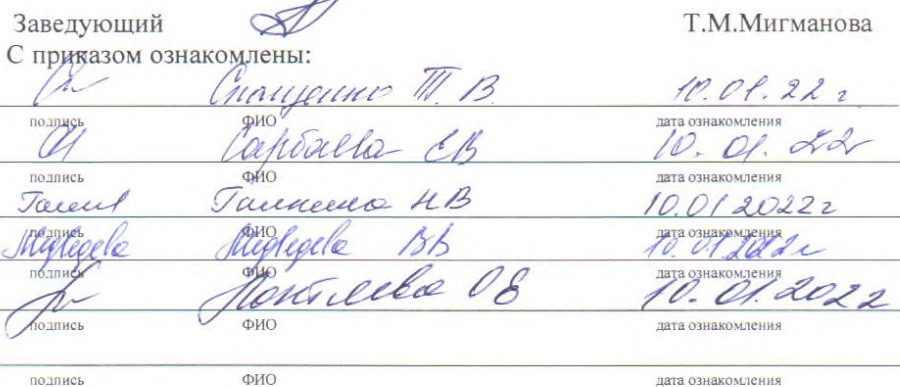 Заведующий Т.М.Мигманова
С приказом ознакомлены:
Т. В. 10.01.22 г
подпись ФИО дата ознакомления
Сарбаева ЕВ 10. 01. 22г
подпись ФИО дата ознакомления
Галкина НВ 10.01 2022г
подпись ФИО дата ознакомления
Медведева Медведева ВВ 10.01 2022г
подпись ФИО дата ознакомления
ОЕ 10.01.2022
подпись ФИО дата ознакомления
подпись ФИО дата ознакомления